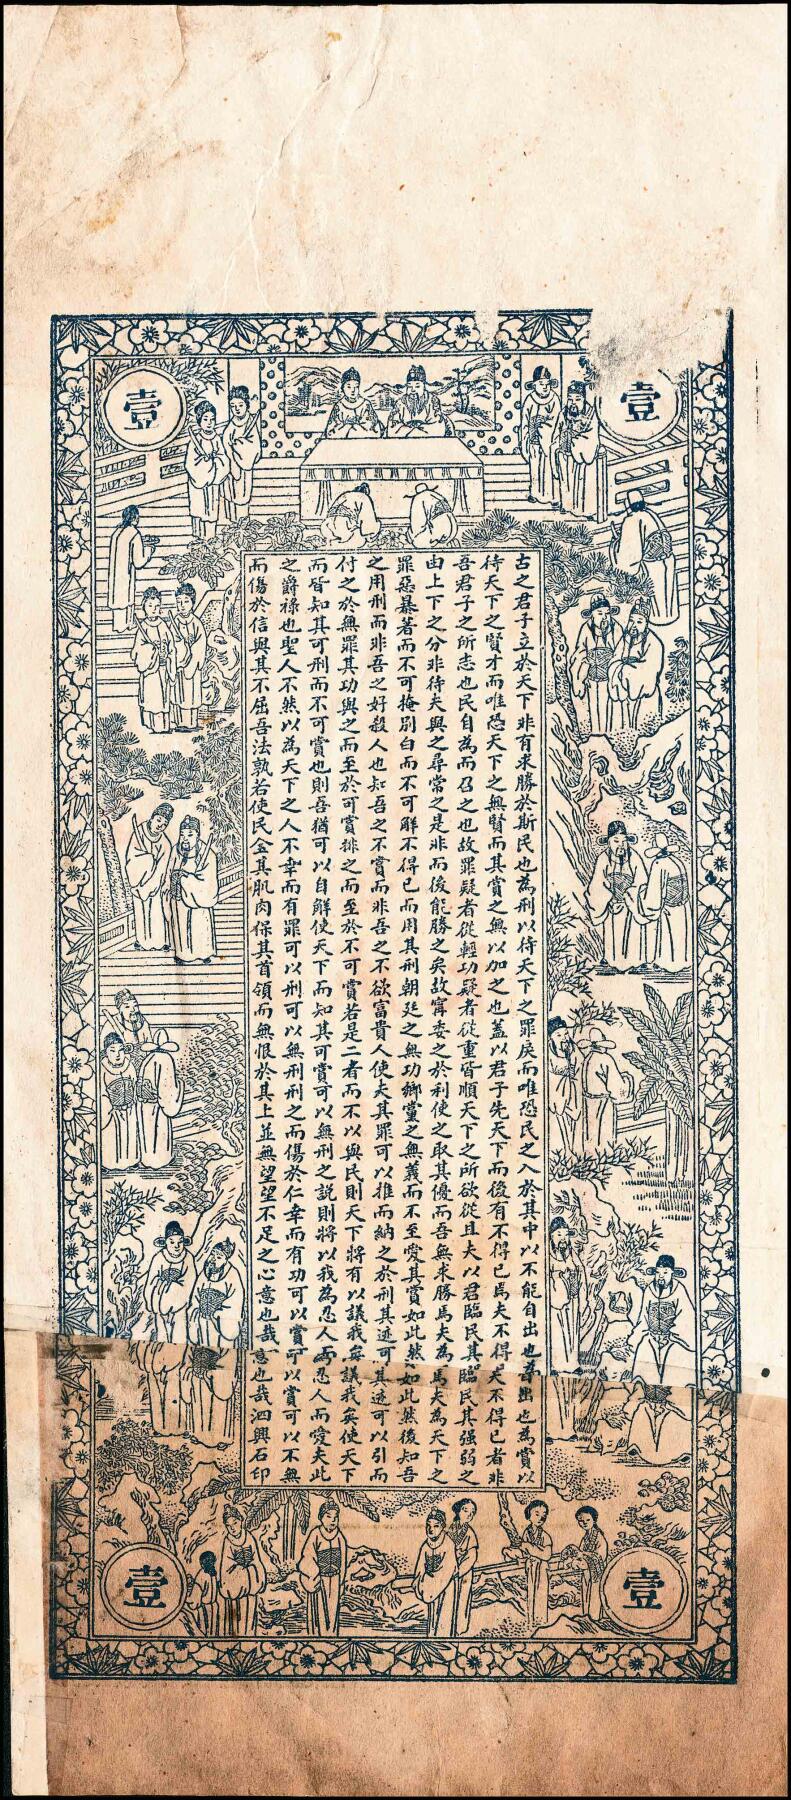 壹
壹
古之君子立於天下非有求勝於斯民也為刑以待天下之罪戾而唯恐民之入於其中以不能自出也為出也為賞以
待天下之賢才而唯恐天下之無賢而其賞之無以加之也蓋以君子先天下而後有不得已焉夫不得夫不得已者非
吾君子之所志也民自為而召之也故罪疑者從輕功疑者從重皆順天下之所欲從且夫以君臨民其臨民其强弱之
由上下之分非待夫與之尋常之是非而後能勝之矣故寧委之於利使之取其優而吾無求勝焉夫為焉夫為天下之
罪惡暴著而不可掩別白而不可解不得已而用其刑朝廷之無功鄉黨之無義而不至愛其賞如此然如此然後知吾
之用刑而非吾之好殺人也知吾之不賞而非吾之不欲富貴人使夫其罪可以推而納之於刑其迹可其迹可以引而
付之於無罪其功與之而至於可賞排之而至於不可賞若是二者而不以與民則天下將有以議我矣議我矣使天下
而皆知其可刑而不可賞也則吾猶可以自解使天下而知其可賞可以無刑之說則將以我為忍人而忍人而愛夫此
之爵祿也聖人不然以為天下之人不幸而有罪可以刑可以無刑刑之而傷於仁幸而有功可以賞可以賞可以不無
而傷於信與其不屈吾法孰若使民全其肌肉保其首領而無恨於其上並無望望不足之心意也哉意也哉泗興石印
壹
壹